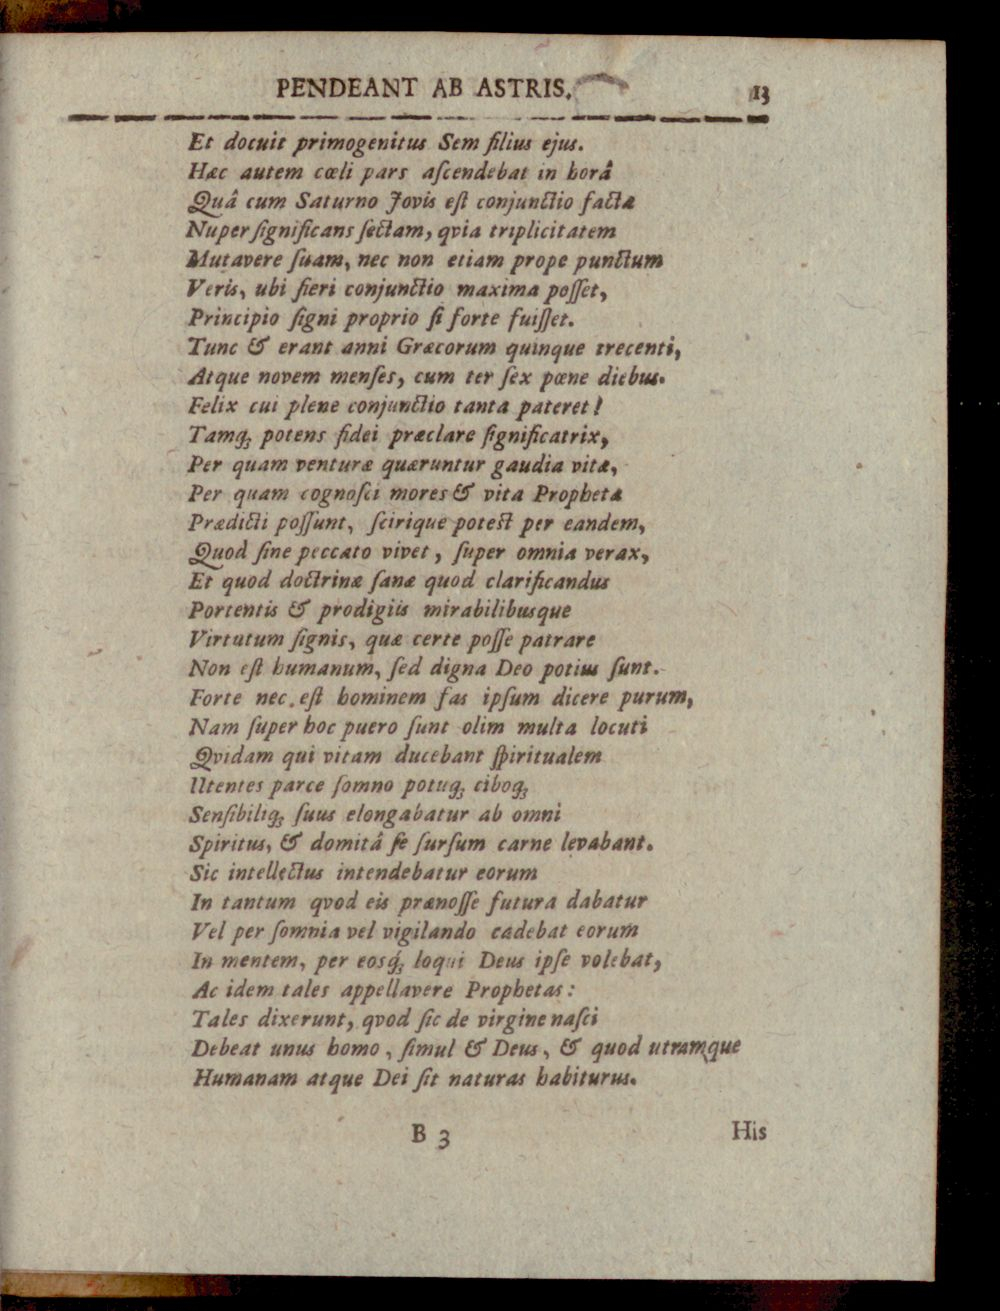 PENDEANT AB ASTRIS. 13
Et docuit primogenitus Sem filius ejus.
Hæc autem cœli pars aſcendebat in horâ
Quâ cum Saturno Jovis eſt conjunctio facta
Nuper ſignificans ſectam, qvia triplicitatem
Mutavere ſuam, nec non etiam prope punctum
Veris, ubi fieri conjunctio maxima poſſet,
Principio ſigni proprio ſi forte fuiſſet.
Tunc & erant anni Græcorum quinque trecenti,
Atque novem menſes, cum ter ſex pœne diebus.
Felix cui plene conjunctio tanta pateret!
Tamq; potens fidei præclare ſignificatrix,
Per quam venturæ quæruntur gaudia vitæ,
Per quam cognoſci mores & vita Prophetæ
Prædicti poſſunt, ſcirique poteſt per eandem,
Quod ſine peccato vivet, ſuper omnia verax,
Et quod doctrinæ ſanæ quod clarificandus
Portentis & prodigiis mirabilibusque
Virtutum ſignis, quæ certe poſſe patrare
Non eſt humanum, ſed digna Deo potius ſunt.
Forte nec eſt hominem fas ipſum dicere purum,
Nam ſuper hoc puero ſunt olim multa locuti
Qvidam qui vitam ducebant ſpiritualem
Utentes parce ſomno potuq; ciboq;
Senſibiliq; ſuus elongabatur ab omni
Spiritus, & domitâ ſe ſurſum carne levabant.
Sic intellectus intendebatur eorum
In tantum qvod eis prænoſſe futura dabatur
Vel per ſomnia vel vigilando cadebat eorum
In mentem, per eosq́; loqui Deus ipſe volebat,
Ac idem tales appellavere Prophetas:
Tales dixerunt, qvod ſic de virgine naſci
Debeat unus homo, ſimul & Deus, & quod utramque
Humanam atque Dei ſit naturas habiturus.
B 3 His